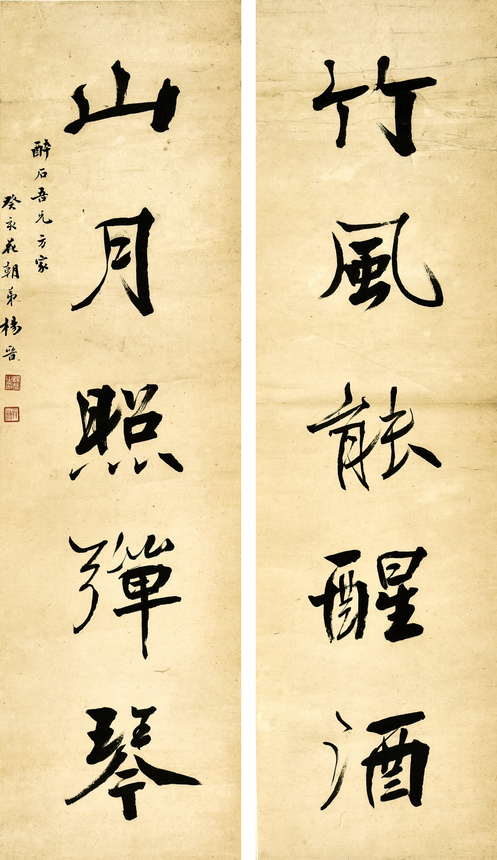 竹風能醒酒
山月照彈琴
醉石吾兄方家
癸亥花朝弟楊晉